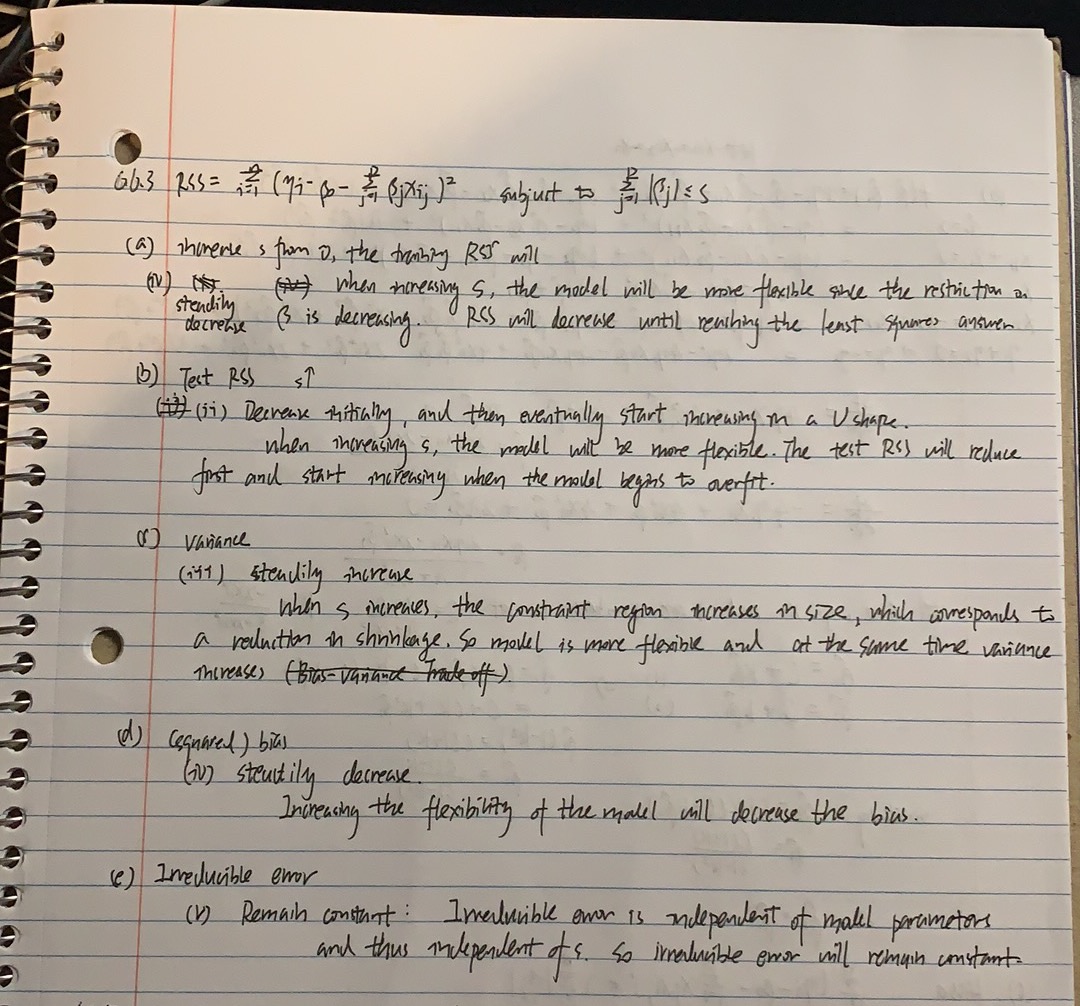 6.6.3 RSS = Σⁿᵢ₌₁ (yᵢ - β₀ - Σᵖⱼ₌₁ βⱼxᵢⱼ)² subject to Σᵖⱼ₌₁ |βⱼ| ≤ s
(a) increase s from 0, the training RSS will
(iv) when increasing s, the model will be more flexible since the restriction on
steadily decrease β is decreasing. RSS will decrease until reaching the least squares answer
(b) Test RSS s↑
(ii) Decrease initially, and then eventually start increasing in a U shape.
when increasing s, the model will be more flexible. The test RSS will reduce
first and start increasing when the model begins to overfit.
(c) variance
(iii) steadily increase
When s increases, the constraint region increases in size, which corresponds to
a reduction in shrinkage. So model is more flexible and at the same time variance
increases (Bias-variance Trade off)
(d) (squared) bias
(iv) steadily decrease.
Increasing the flexibility of the model will decrease the bias.
(e) Irreducible error
(v) Remain constant: Irreducible error is independent of model parameters
and thus independent of s. So irreducible error will remain constant.